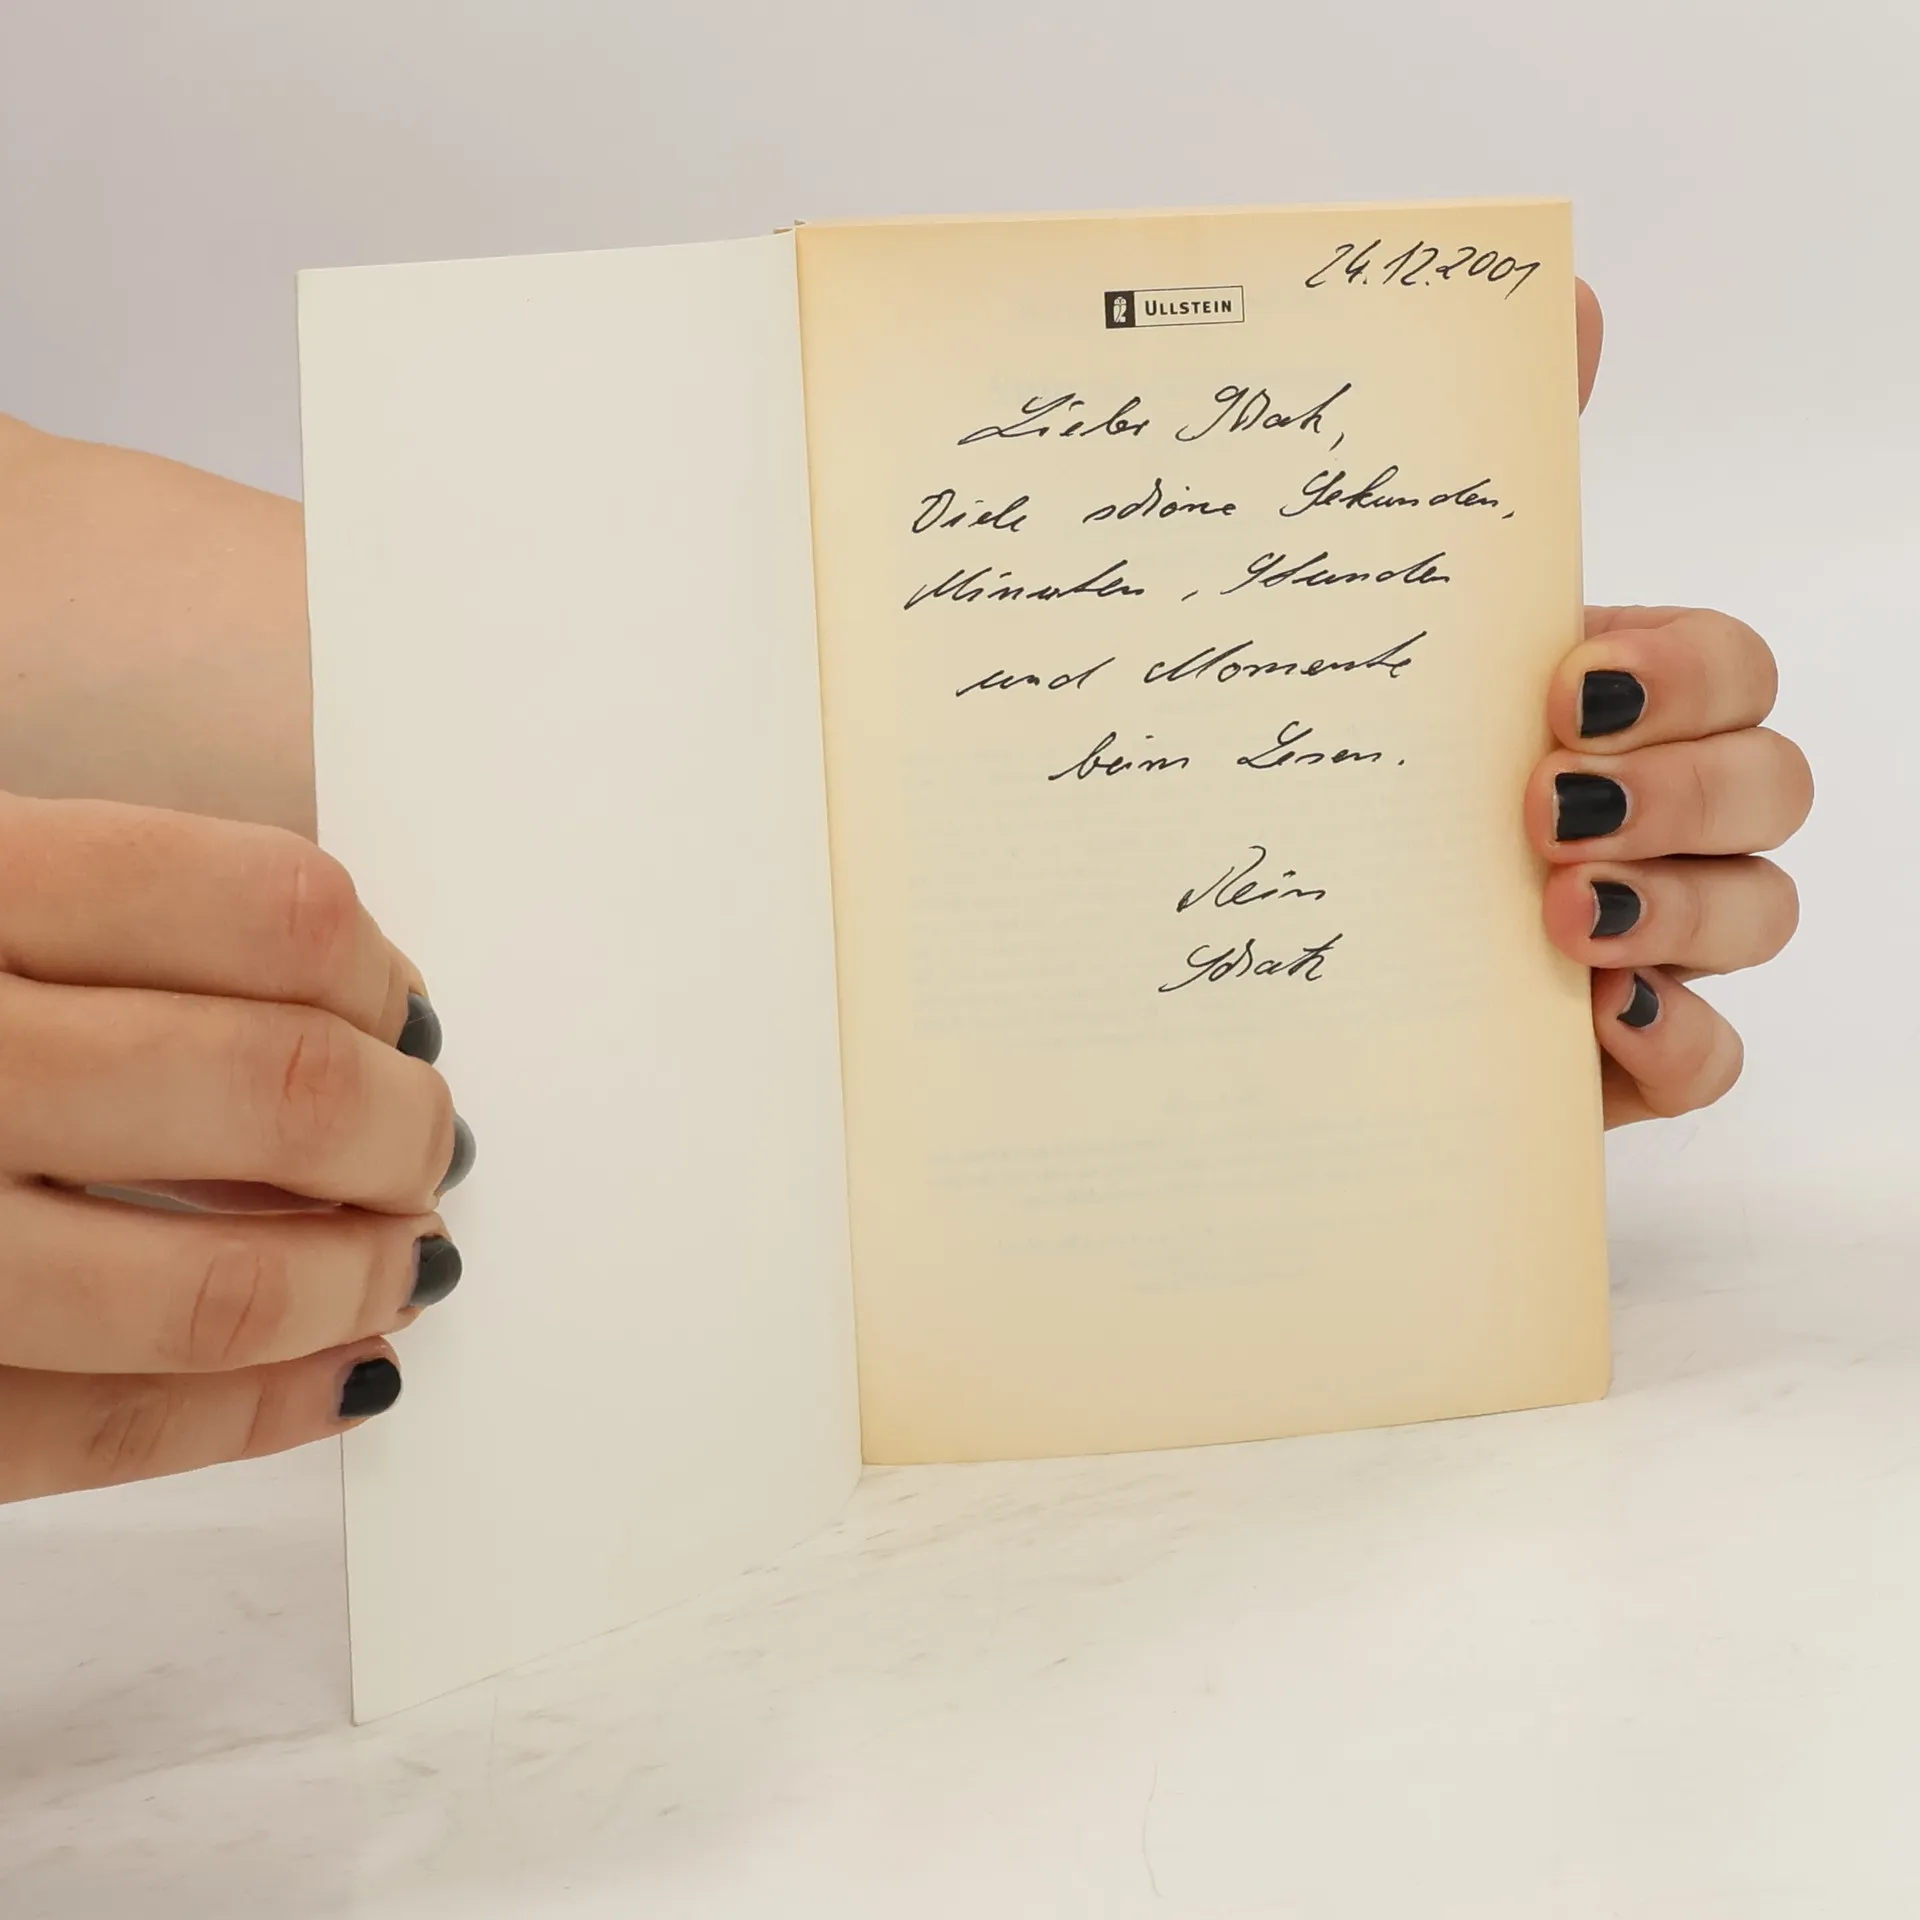 24.12.2001
ULLSTEIN
Lieber Schatz,
Viele schöne Sekunden,
Minuten, Stunden
und Momente
beim Lesen.
Dein
Schatz